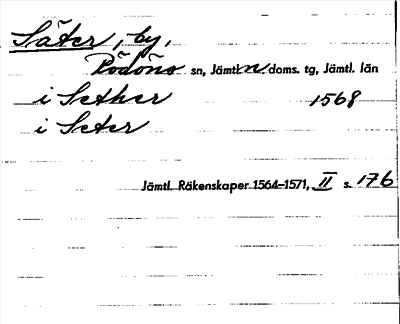 Säter, by,
Rödöns sn, Jämtl. n doms. tg, Jämtl. län
i Sether 1568
i Seter
Jämtl. Räkenskaper 1564–1571, II s. 176